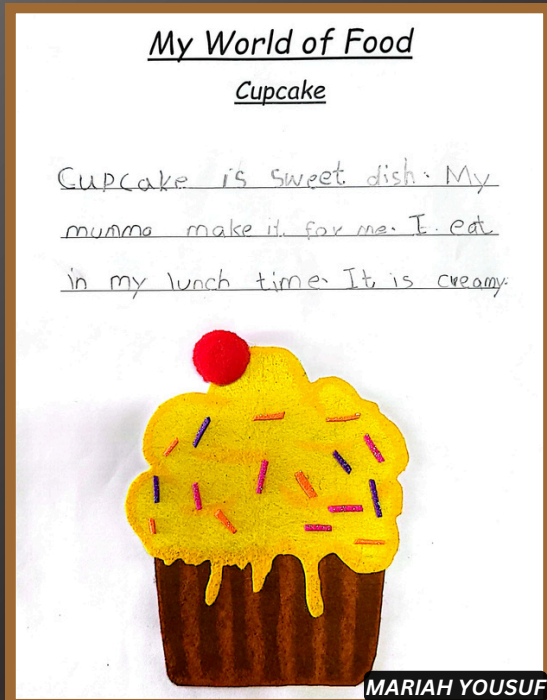 My World of Food
Cupcake
Cupcake is sweet dish. My
mumma make it for me. I eat
in my lunch time. It is creamy.
MARIAH YOUSUF